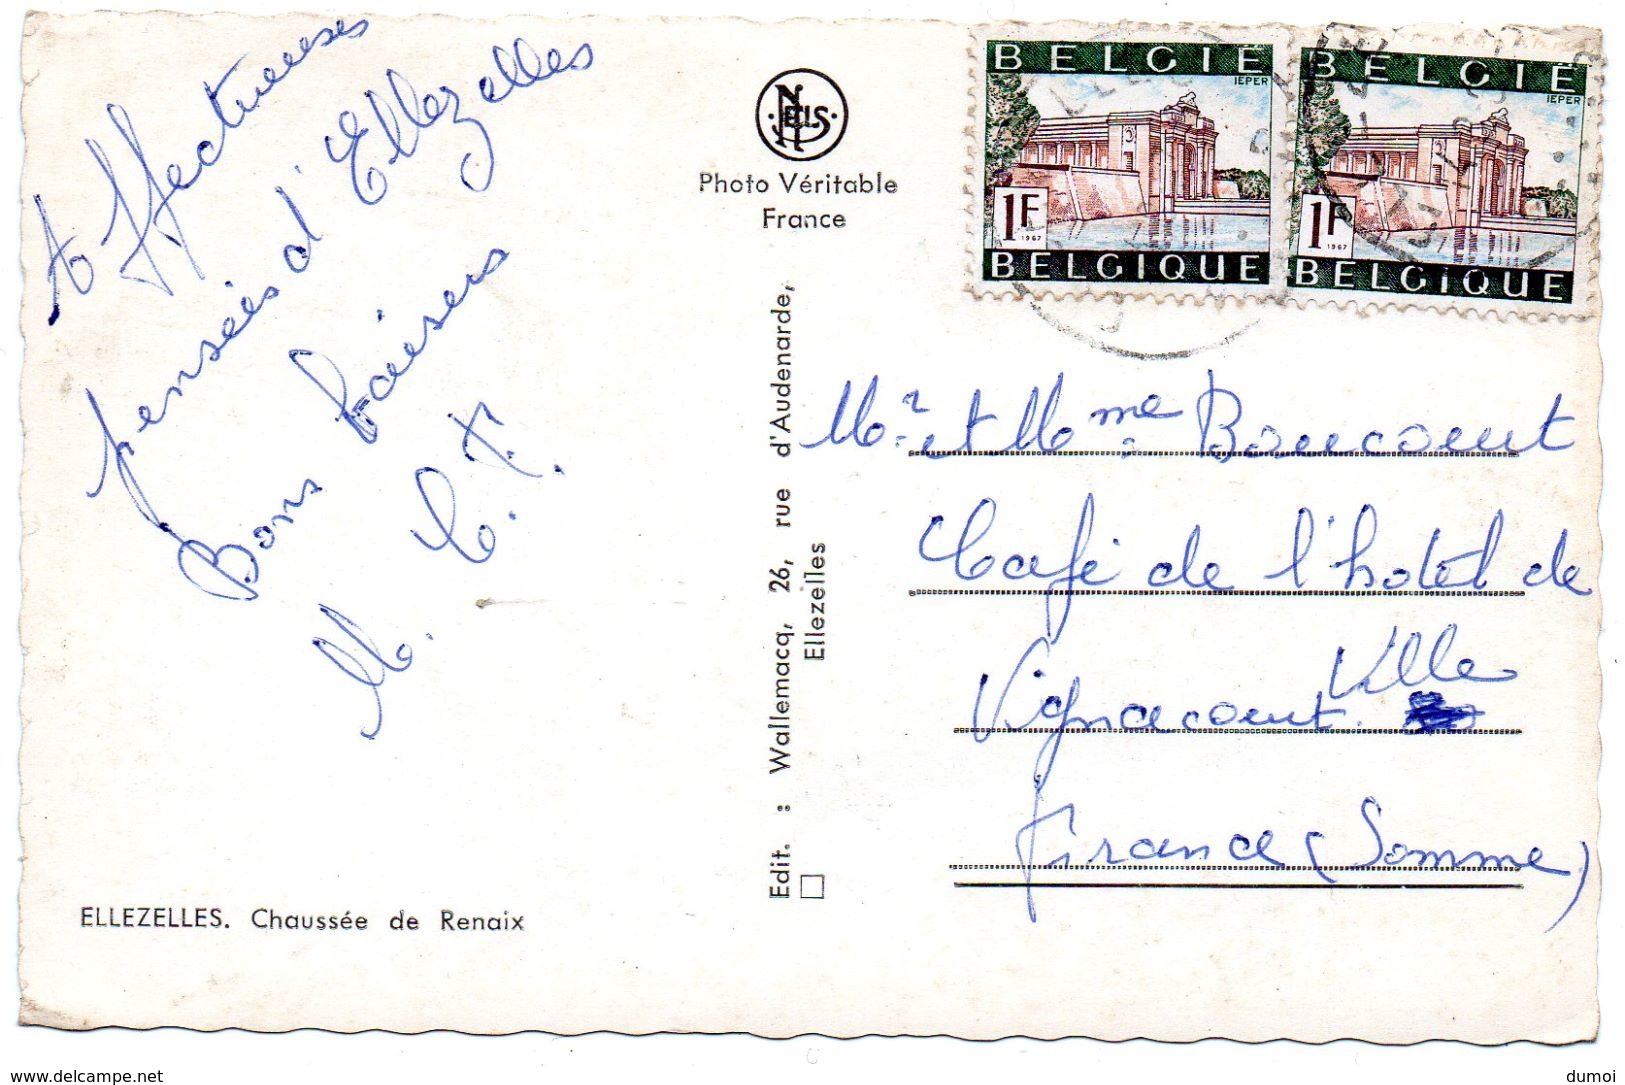 Affectueuses
pensées d'Ellezelles
Bons baisers
M. C. T.
ELLEZELLES. Chaussée de Renaix
NELS
Photo Véritable
France
Edit. : Wallemacq, 26, rue d'Audenarde,
Ellezelles
BELGIË
IEPER
1F
1967
BELGIQUE
BELGIË
IEPER
1F
1967
BELGIQUE
Mr. et Mme. Boucourt
Café de l'hotel de
Ville
Vignacourt.
France (Somme)
www.delcampe.net
dumoi